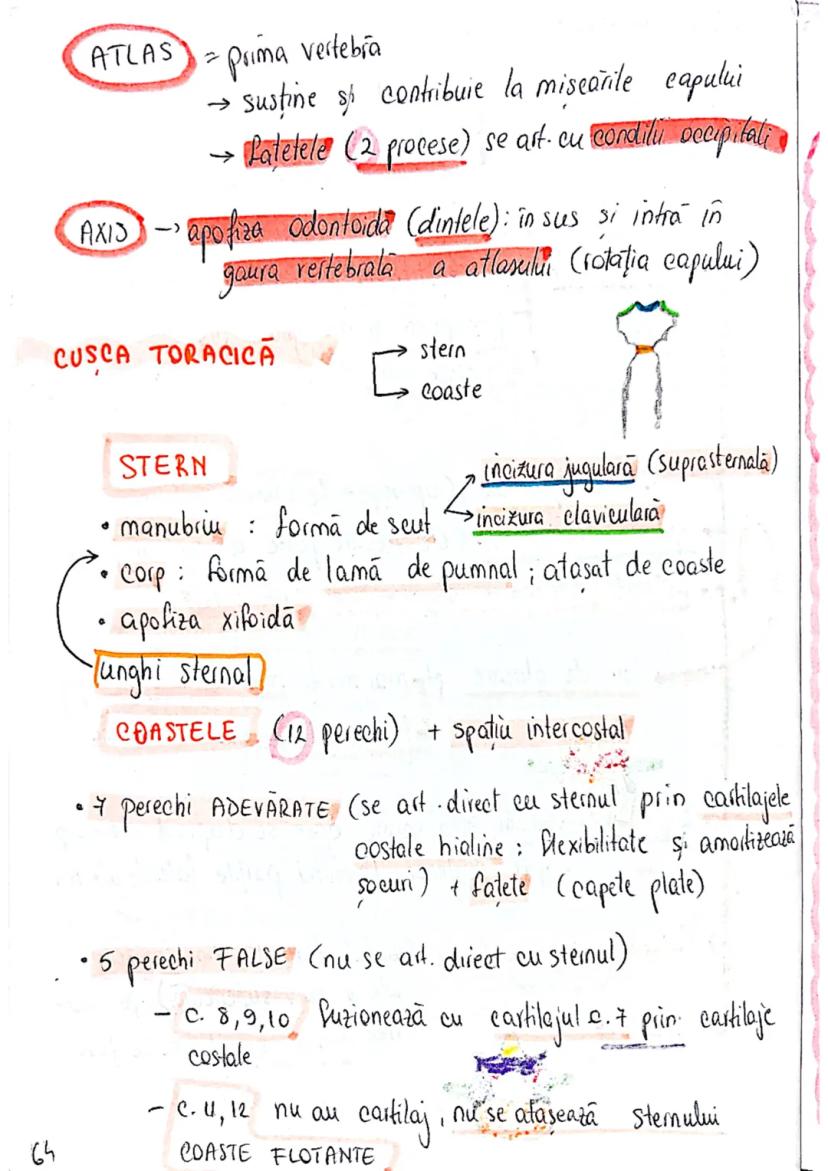 ATLAS = prima vertebră
→ susține și contribuie la mișcările capului
→ fațetele (2 procese) se art. cu condilii occipitali
AXIS → apofiza odontoidă (dintele): în sus și intră în
gaura vertebrală a atlasului (rotația capului)
CUȘCA TORACICĂ → stern
→ coaste
STERN
incizura jugulară (suprasternală)
• manubriu : formă de scut → incizura claviculară
• corp : formă de lamă de pumnal ; atașat de coaste
• apofiza xifoidă
unghi sternal
COASTELE (12 perechi) + spațiu intercostal
• 7 perechi ADEVĂRATE (se art. direct cu sternul prin cartilajele
costale hialine : flexibilitate și amortizează
șocuri) + fațete (capete plate)
• 5 perechi FALSE (nu se art. direct cu sternul)
– c. 8,9,10 fuzionează cu cartilajul c.7 prin cartilaje
costale
– c. 11,12 nu au cartilaj, nu se atașează sternului
COASTE FLOTANTE
64